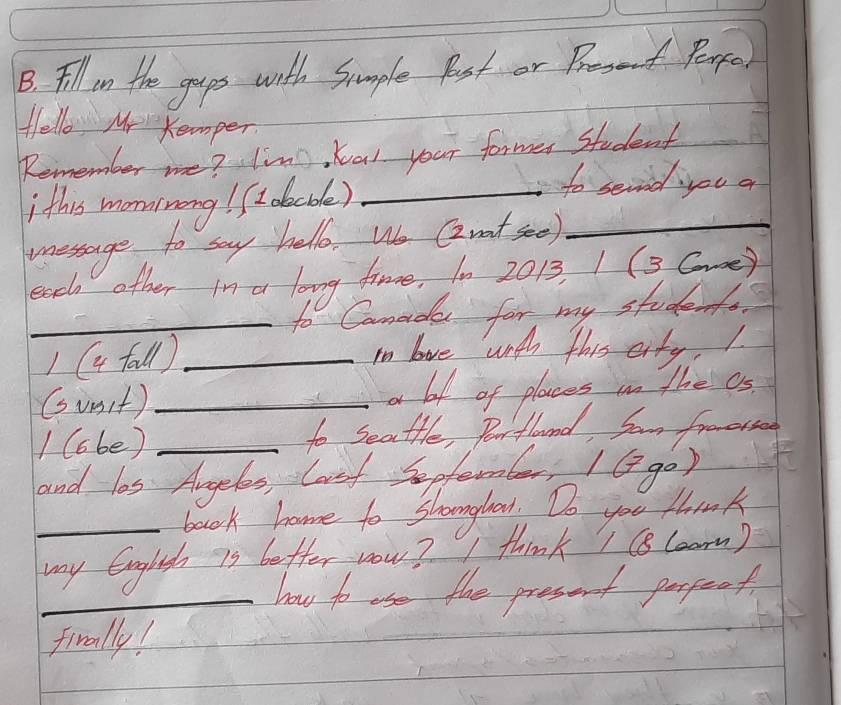 B. Fill in the gaps with Simple Past or Present Perfe.
Hello, Mr Kemper.
Remember me? I'm your former Student
¡this morninong! (1 decide) __________ to send you a
message to say hello. We (2 not see) __________
each other in a long time. In 2013, I (3 Come)
__________ to Canada for my students.
I (4 fall) __________ in love with this city. I
(5 visit) __________ a lot of places in the Us.
I (6 be) __________ to Seattle, Portland, San francisco
and los Angeles, Last September, I (7 go)
__________ back home to Shanghai. Do you think
my English is better now? I think I (8 learn)
__________ how to use the present perfect.
finally!